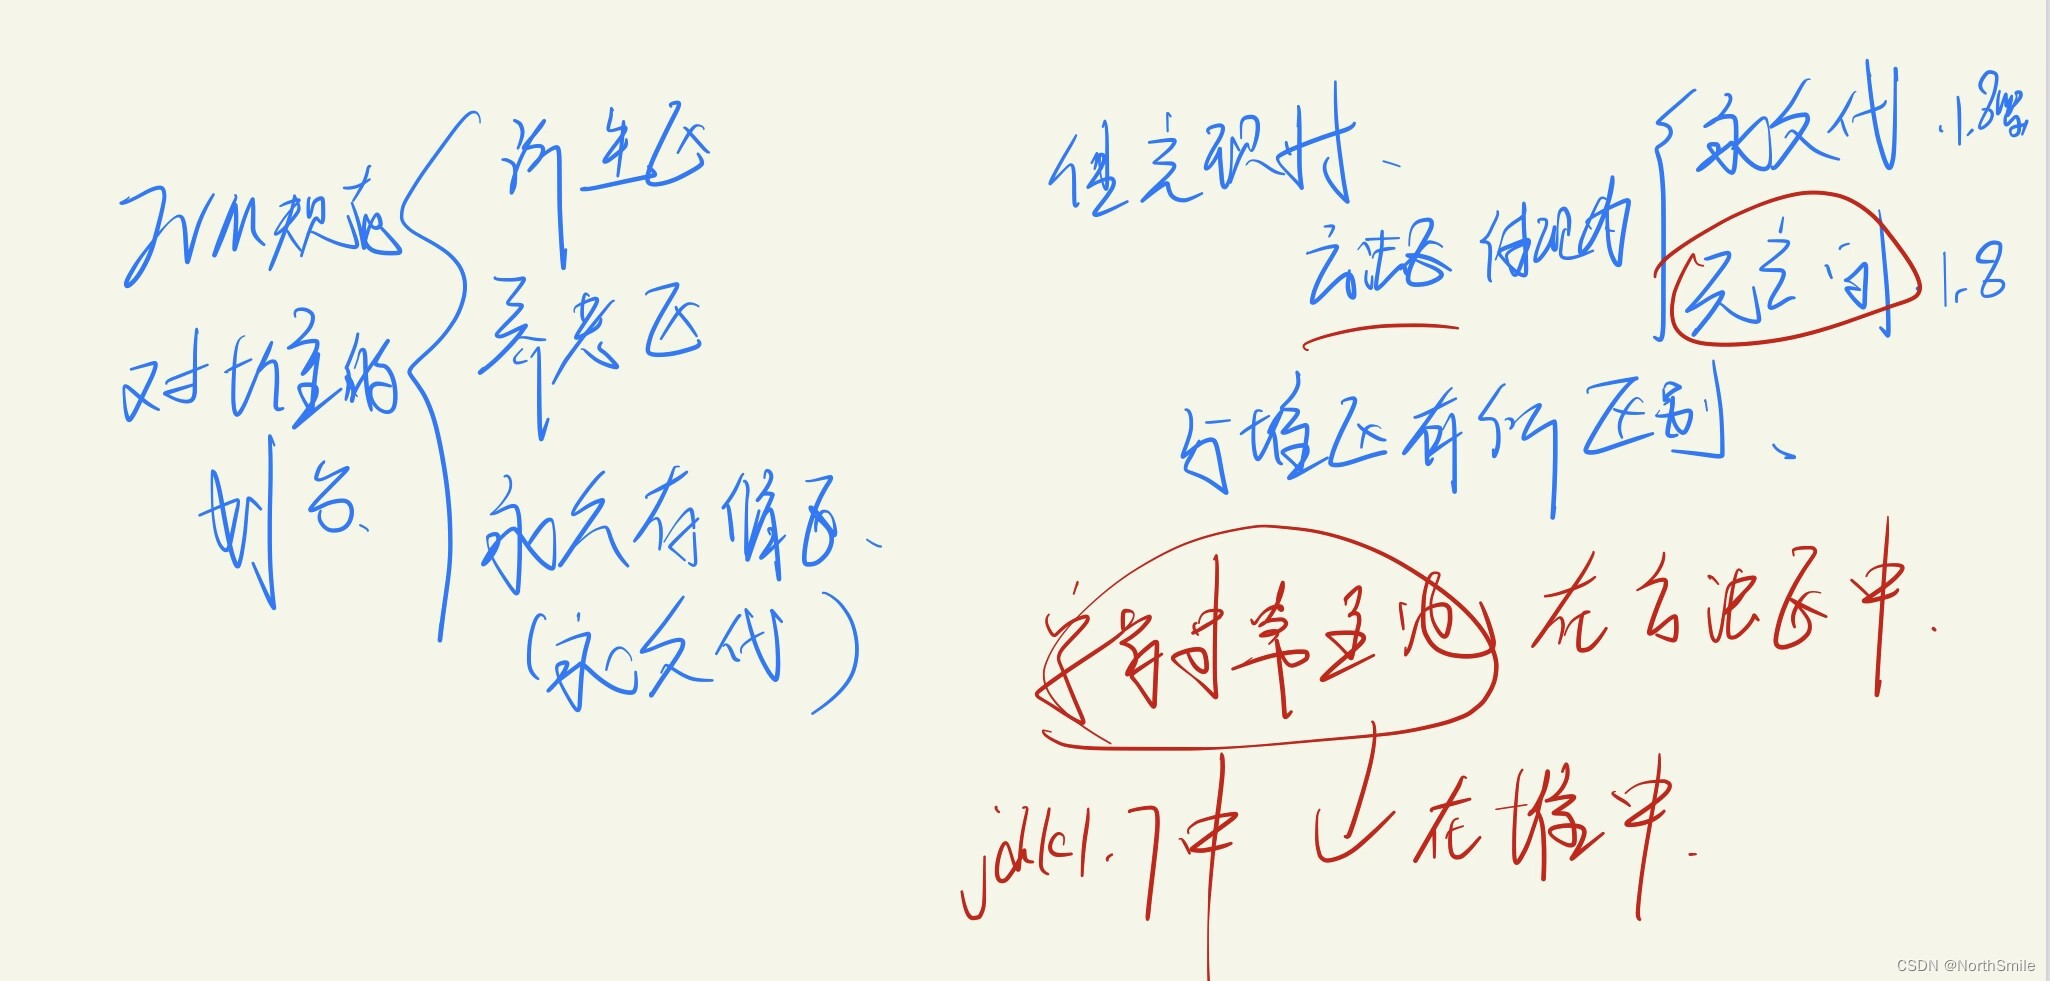 JVM规范
对堆的
划分、
新生区
养老区
永久存储区、
(永久代)
但它现时、
方法区 体现为
永久代 .1.8前
元空间 1.8
与堆区有所区别、
字符串常量池 在方法区中.
jdk1.7中 在堆中.
CSDN @NorthSmile